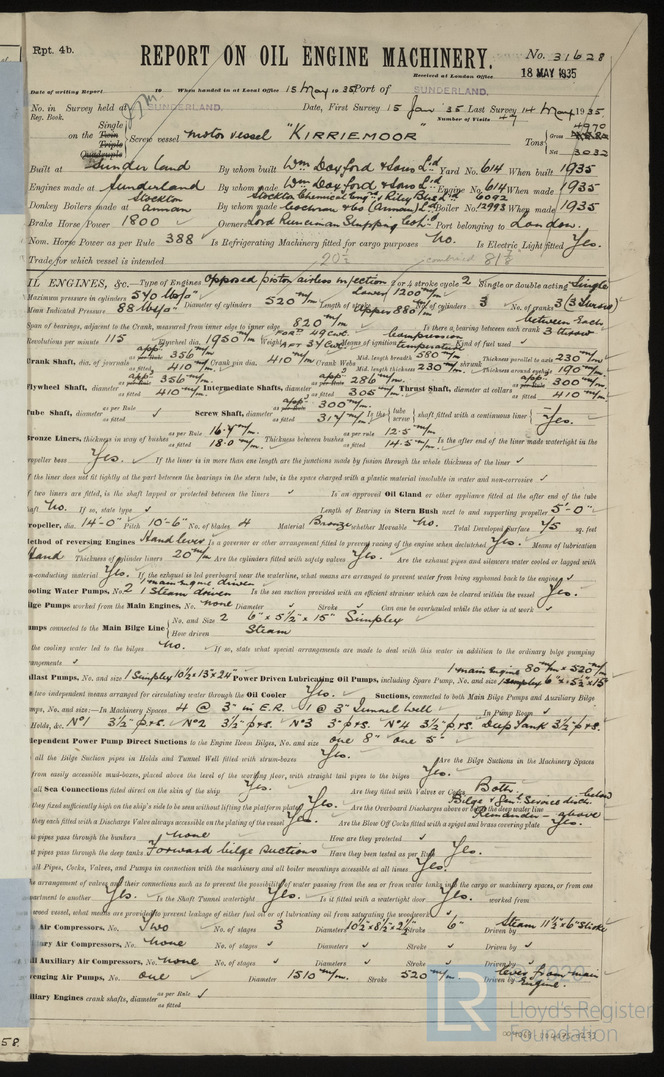 Rpt. 4b.
REPORT ON OIL ENGINE MACHINERY.
No. 31628
Received at London Office 18 MAY 1935
Date of writing Report 19 When handed in at Local Office 15 May 1935 Port of SUNDERLAND.
No. in Survey held at SUNDERLAND. Date, First Survey 15 Jan '35 Last Survey 14 May 1935
Reg. Book. Number of Visits 47
on the Single Twin Triple Quadruple Screw vessel motor vessel "KIRRIEMOOR" Tons Gross 4970 Net 3032
Built at Sunderland By whom built Wm Doxford & Sons Ltd Yard No. 614 When built 1935
Engines made at Sunderland By whom made Wm Doxford & Sons Ltd Engine No. 614 When made 1935
Donkey Boilers made at Stockton Annan By whom made Stockton Chemical Engrs & Riley Boilers Ltd Cochran & Co (Annan) Ltd Boiler No. 6092 12993 When made 1935
Brake Horse Power 1800 Owners Lord Runciman Shipping Co Ltd Port belonging to London.
Nom. Horse Power as per Rule 388 Is Refrigerating Machinery fitted for cargo purposes No. Is Electric Light fitted Yes.
Trade for which vessel is intended
IL ENGINES, &c.—Type of Engines Opposed piston airless injection 2 or 4 stroke cycle 2 Single or double acting Single
Maximum pressure in cylinders 540 lbs/□" Diameter of cylinders 520 m/m Length of stroke Lower 1200 m/m Upper 880 m/m No. of cylinders 3 No. of cranks 3 (3 throw)
Mean Indicated Pressure 88 lbs/□"
Span of bearings, adjacent to the Crank, measured from inner edge to inner edge 820 m/m Is there a bearing between each crank between Each 3 throw
Revolutions per minute 115 Flywheel dia. 1950 m/m Weight FOR'D 49 Cwt. AFT 34 Cwt. Means of ignition Compression temperature Kind of fuel used ✓
Crank Shaft, dia. of journals as per Rule app. 356 m/m as fitted 410 m/m Crank pin dia. 410 m/m Crank Webs Mid. length breadth 580 m/m Mid. length thickness 230 m/m shrunk Thickness parallel to axis 230 m/m Thickness around eyehole 190 m/m
Flywheel Shaft, diameter as per Rule app. 356 m/m as fitted 410 m/m Intermediate Shafts, diameter as per Rule app. 286 m/m as fitted 305 m/m Thrust Shaft, diameter at collars as per Rule app. 300 m/m as fitted 410 m/m
Tube Shaft, diameter as per Rule as fitted ✓ Screw Shaft, diameter as per Rule app. 300 m/m as fitted 317 m/m Is the { tube screw } shaft fitted with a continuous liner { Yes.
Bronze Liners, thickness in way of bushes as per Rule 16.7 m/m as fitted 18.0 m/m Thickness between bushes as per rule 12.5 m/m as fitted 14.5 m/m Is the after end of the liner made watertight in the
propeller boss Yes. If the liner is in more than one length are the junctions made by fusion through the whole thickness of the liner ✓
If the liner does not fit tightly at the part between the bearings in the stern tube, is the space charged with a plastic material insoluble in water and non-corrosive ✓
If two liners are fitted, is the shaft lapped or protected between the liners ✓ Is an approved Oil Gland or other appliance fitted at the after end of the tube
shaft No. If so, state type ✓ Length of Bearing in Stern Bush next to and supporting propeller 5'-0"
Propeller, dia. 14'-0" Pitch 10'-6" No. of blades 4 Material Bronze whether Moveable No. Total Developed Surface 75 sq. feet
Method of reversing Engines Hand lever Is a governor or other arrangement fitted to prevent racing of the engine when declutched Yes. Means of lubrication
Hand Thickness of cylinder liners 20 m/m Are the cylinders fitted with safety valves Yes. Are the exhaust pipes and silencers water cooled or lagged with
non-conducting material Yes. If the exhaust is led overboard near the waterline, what means are arranged to prevent water from being syphoned back to the engine ✓
Cooling Water Pumps, No. 2 1 main engine driven 1 Steam driven Is the sea suction provided with an efficient strainer which can be cleared within the vessel Yes.
Bilge Pumps worked from the Main Engines, No. none Diameter ✓ Stroke ✓ Can one be overhauled while the other is at work ✓
Pumps connected to the Main Bilge Line { No. and Size 2 6" x 5½" x 15" Simplex
How driven Steam
the cooling water led to the bilges No. If so, state what special arrangements are made to deal with this water in addition to the ordinary bilge pumping
arrangements ✓
Ballast Pumps, No. and size 1 Simplex 10½ x 13 x 24" Power Driven Lubricating Oil Pumps, including Spare Pump, No. and size 1 main Engine 80 m/m x 520 m/m 1 simplex 6" x 5½" x 15"
two independent means arranged for circulating water through the Oil Cooler Yes. Suctions, connected to both Main Bilge Pumps and Auxiliary Bilge
umps, No. and size:—In Machinery Spaces 4 @ 3" in E.R. 1 @ 3" Tunnel Well In Pump Room ✓
Holds, &c. No 1 3½" p+s. No 2 3½" p+s No 3 3" p+s. No 4 3½" p+s. Deep Tank 3½" p+s.
Independent Power Pump Direct Suctions to the Engine Room Bilges, No. and size one 8" one 5"
all the Bilge Suction pipes in Holds and Tunnel Well fitted with strum-boxes Yes. Are the Bilge Suctions in the Machinery Spaces
from easily accessible mud-boxes, placed above the level of the working floor, with straight tail pipes to the bilges Yes.
all Sea Connections fitted direct on the skin of the ship Yes. Are they fitted with Valves or Cocks Both.
they fixed sufficiently high on the ship's side to be seen without lifting the platform plates Yes. Are the Overboard Discharges above or below the deep water line Bilge & Gen. Service disch. below Remainder - above
they each fitted with a Discharge Valve always accessible on the plating of the vessel Yes. Are the Blow Off Cocks fitted with a spigot and brass covering plate Yes.
pipes pass through the bunkers None How are they protected ✓
pipes pass through the deep tanks Forward bilge suctions Have they been tested as per Rule Yes.
all Pipes, Cocks, Valves, and Pumps in connection with the machinery and all boiler mountings accessible at all times Yes.
the arrangement of valves and their connections such as to prevent the possibility of water passing from the sea or from water tanks into the cargo or machinery spaces, or from one
partment to another Yes. Is the Shaft Tunnel watertight Yes. Is it fitted with a watertight door Yes. worked from
wood vessel, what means are provided to prevent leakage of either fuel oil or of lubricating oil from saturating the woodwork ✓
Air Compressors, No. Two No. of stages 3 Diameters 10½ x 8½ x 2½ Stroke 6" Driven by Steam 11½ x 6" Stroke
iliary Air Compressors, No. None No. of stages ✓ Diameters ✓ Stroke ✓ Driven by ✓
all Auxiliary Air Compressors, No. None No. of stages ✓ Diameters ✓ Stroke ✓ Driven by ✓
venging Air Pumps, No. one Diameter 1510 m/m. Stroke 520 m/m. Driven by lever from main Engine.
iliary Engines crank shafts, diameter as per Rule as fitted ✓
58.
LR Lloyd's Register Foundation